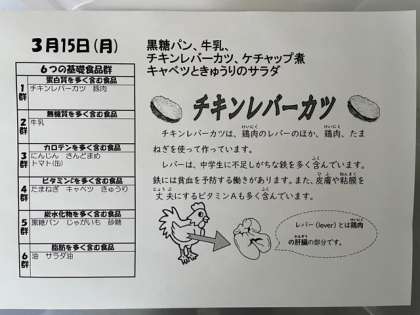 3月15日(月)
黒糖パン、牛乳、
チキンレバーカツ、ケチャップ煮
キャベツときゅうりのサラダ
6つの基礎食品群
1群
蛋白質を多く含む食品
チキンレバーカツ 豚肉
2群
無機質を多く含む食品
牛乳
3群
カロテンを多く含む食品
にんじん さんどまめ
トマト(缶)
4群
ビタミンCを多く含む食品
たまねぎ キャベツ きゅうり
5群
炭水化物を多く含む食品
黒糖パン じゃがいも 砂糖
6群
脂肪を多く含む食品
油 サラダ油
チキンレバーカツ
チキンレバーカツは、鶏肉のレバーのほか、鶏肉、たま
ねぎを使って作っています。
レバーは、中学生に不足しがちな鉄を多く含んでいます。
鉄には貧血を予防する働きがあります。また、皮膚や粘膜を
丈夫にするビタミンAも多く含んでいます。
レバー(lever)とは鶏肉
の肝臓の部分です。